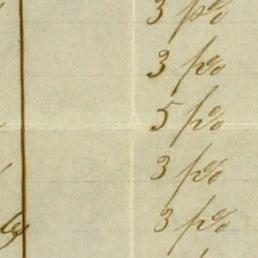 3 p%
3 p%
5 p%
3 p%
3 p%